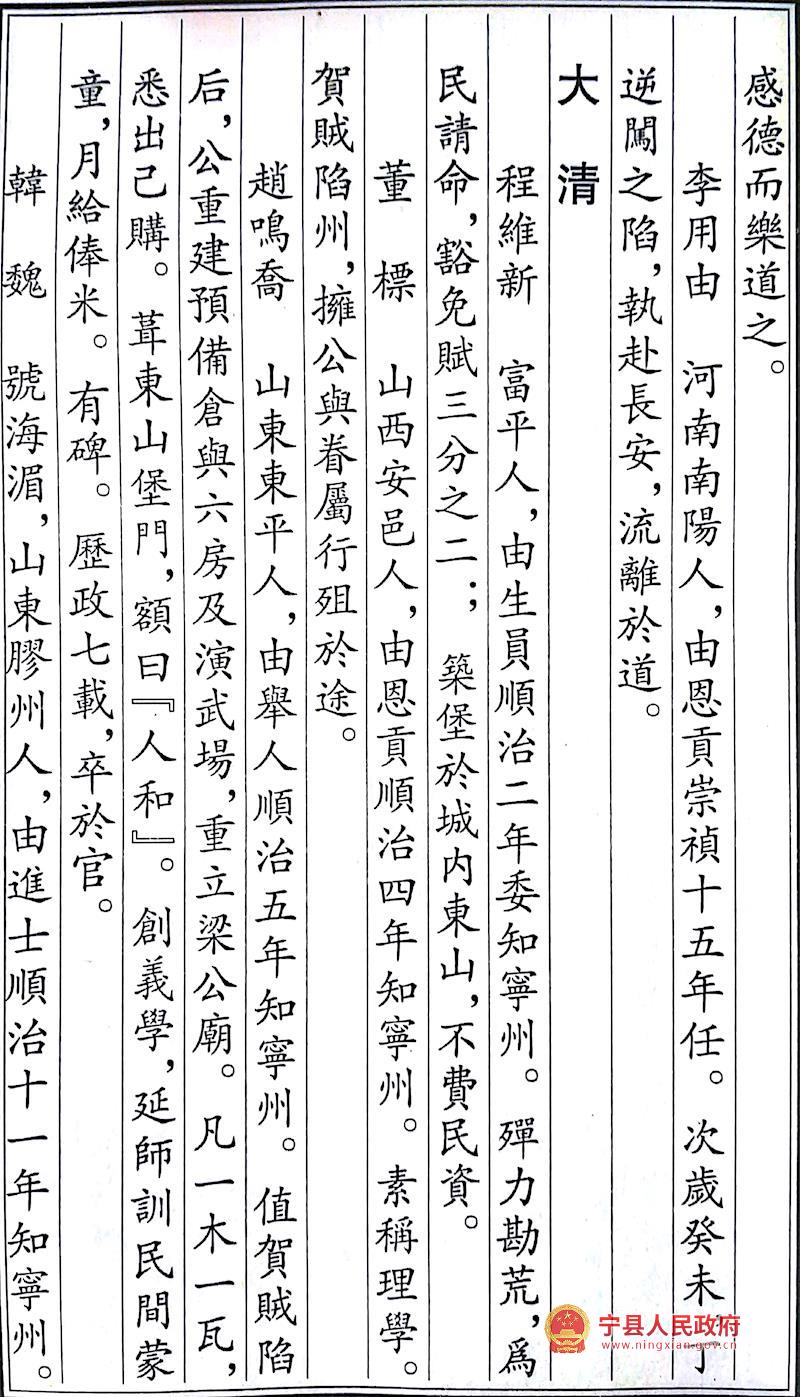 感德而樂道之。
李用由　河南南陽人，由恩貢崇禎十五年任。次歲癸未，丁
逆闖之陷，執赴長安，流離於道。
大　清
程維新　富平人，由生員順治二年委知寧州。殫力勘荒，爲
民請命，豁免賦三分之二；築堡於城内東山，不費民資。
董　標　山西安邑人，由恩貢順治四年知寧州。素稱理學。
賀賊陷州，擁公與眷屬行殂於途。
趙鳴喬　山東東平人，由舉人順治五年知寧州。值賀賊陷
后，公重建預備倉與六房及演武場，重立梁公廟。凡一木一瓦，
悉出己購。葺東山堡門，額曰『人和』。創義學，延師訓民間蒙
童，月給俸米。有碑。歷政七載，卒於官。
韓　魏　號海湄，山東膠州人，由進士順治十一年知寧州。
宁县人民政府
www.ningxian.gov.cn